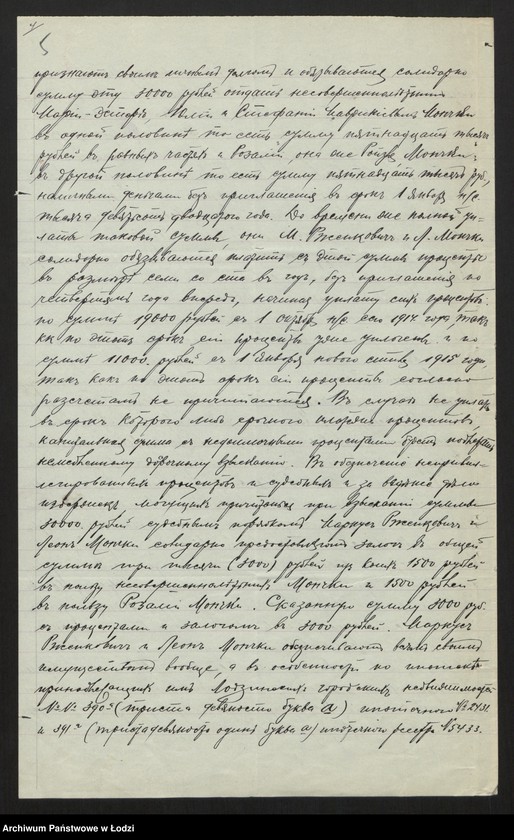 4/
признаютъ своимъ личнымъ долгомъ и обязываются солидарно
сумму эту 30000 рублей отдать несовершеннолѣтнимъ
Маріи-Эстерѣ, и Стефаніи Мончки
въ одной половинѣ то есть сумму пятнадцать тысячъ
рублей въ равныхъ частяхъ и Розаліи, она же Мончки
въ другой половинѣ то есть сумму пятнадцать тысячъ руб.,
наличными деньгами безъ приглашенія въ срокъ 1 Января н/с
тысяча девятьсотъ двадцатаго года. До времени же полной уп-
латы таковой суммы, они М. Вженковичъ и Л. Мончки
солидарно обязываются платить съ этой суммы проценты
въ размѣрѣ семи со ста въ годъ, безъ приглашенія по
четвертямъ года впередъ, начиная уплату сихъ процентовъ:
по суммѣ 19000 рублей съ 1 Октября н/с сего 1914 года такъ
какъ по этотъ срокъ сіи проценты уже уплочены и по
суммѣ 11000 рублей съ 1 Января новаго стиля 1915 года,
такъ какъ по этотъ срокъ сіи проценты согласно
разсчетамъ не причитаются. Въ случаѣ не уплаты
въ срокъ котораго либо срочнаго платежа процентовъ,
капитальная сумма съ недоимочными процентами будетъ подлежать
немедленному взысканію. Въ обезпеченіе непривил-
легированныхъ процентовъ и судебныхъ и за веденіе дѣла
издержекъ, могущихъ причитаться при взысканіи суммы
30000 рублей судебнымъ порядкомъ Маркусъ Вженковичъ и
Леонъ Мончки солидарно предоставляютъ залогъ въ общей
суммѣ три тысячи (3000) рублей изъ коихъ 1500 рублей
въ пользу несовершеннолѣтнихъ Мончки и 1500 рублей
въ пользу Розаліи Мончки. Сказанную сумму 30000 руб.
съ процентами и залогомъ въ 3000 рублей. Маркусъ
Вженковичъ и Леонъ Мончки обезпечиваютъ всѣмъ своимъ
имуществомъ вообще, а въ особенности по ипотекѣ
принадлежащихъ имъ Лодзинскихъ городскихъ недвижимостей
№№ 390а (триста девяносто буква а) ипотечнаго № 2431
и 391а (триста девяносто одинъ буква а) ипотечнаго реестра № 5433.
Archiwum Państwowe w Łodzi